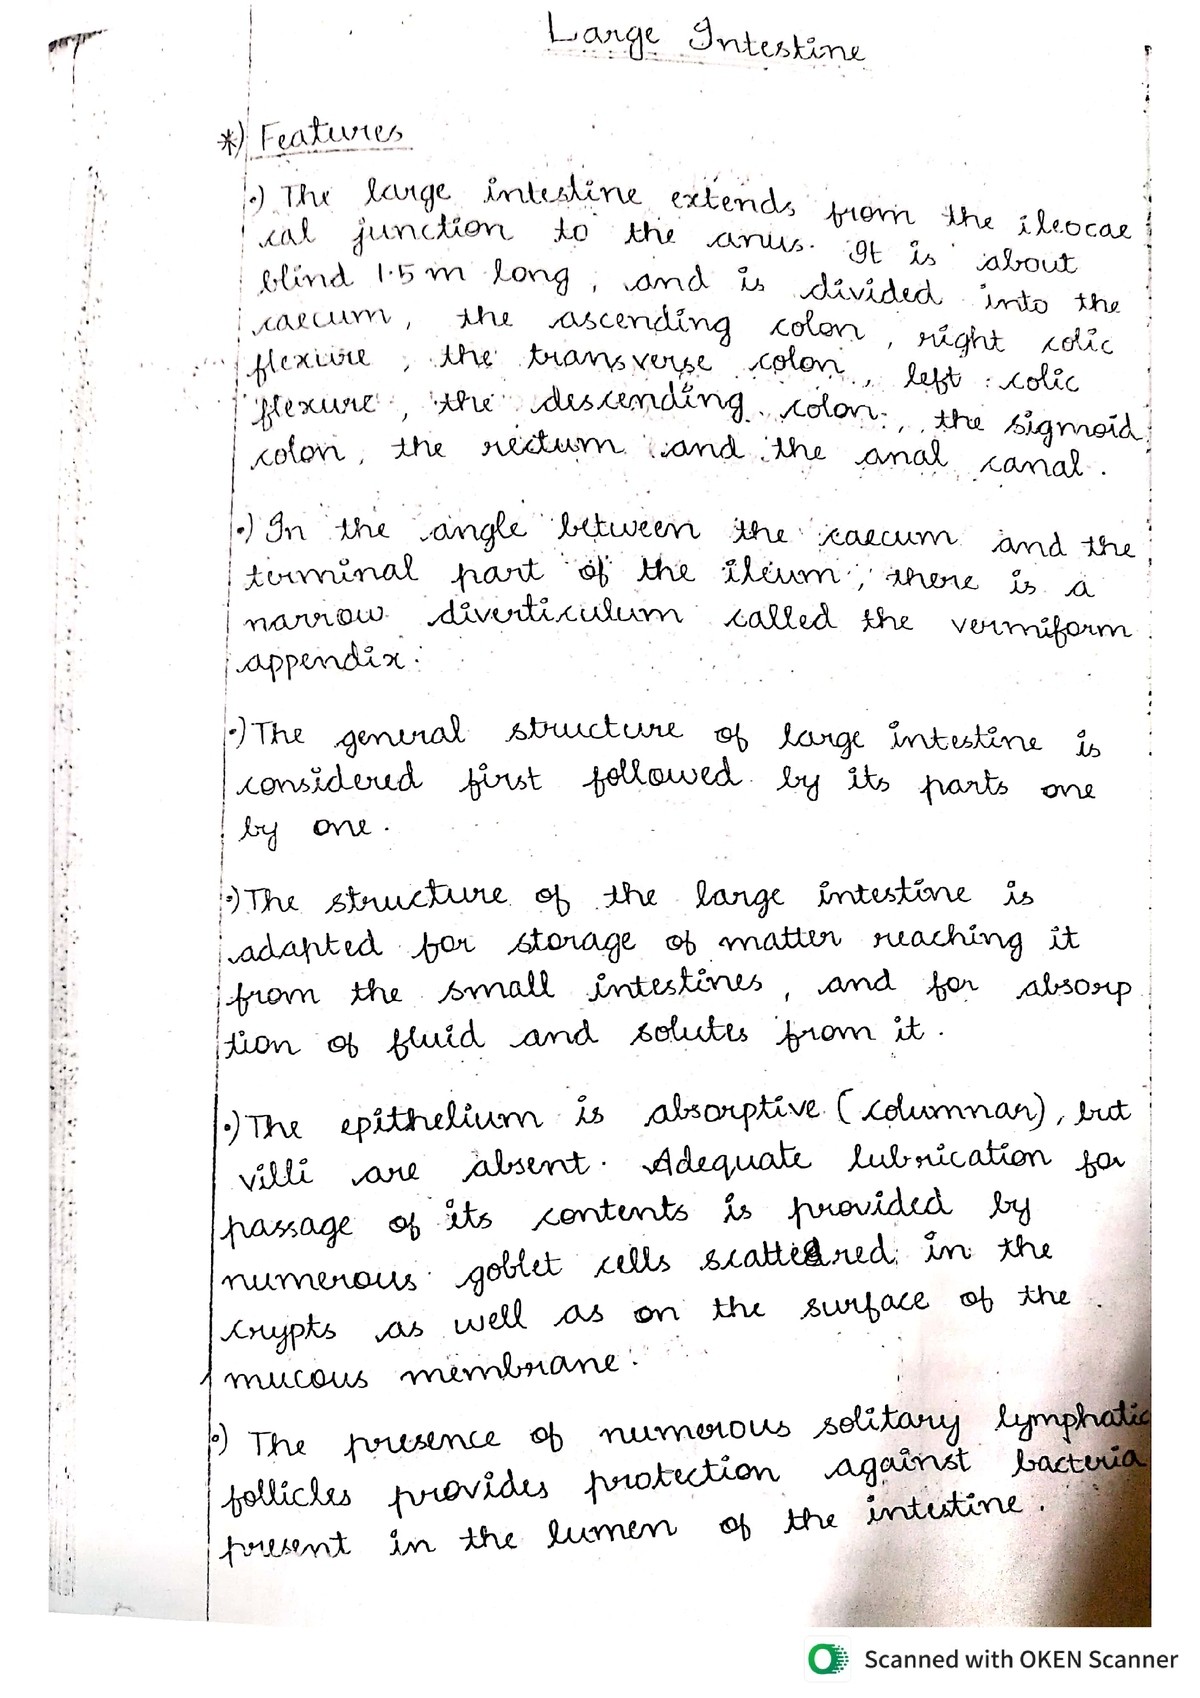 Large Intestine
*) Features
•) The large intestine extends from the ileocae
cal junction to the anus. It is about
blind 1.5 m long, and is divided into the
caecum, the ascending colon, right colic
flexure, the transverse colon, left colic
flexure, the descending colon, the sigmoid
colon, the rectum and the anal canal.
•) In the angle between the caecum and the
terminal part of the ileum, there is a
narrow diverticulum called the vermiform
appendix.
•) The general structure of large intestine is
considered first followed by its parts one
by one.
•) The structure of the large intestine is
adapted for storage of matter reaching it
from the small intestines, and for absorp
tion of fluid and solutes from it.
•) The epithelium is absorptive (columnar), but
villi are absent. Adequate lubrication for
passage of its contents is provided by
numerous goblet cells scattered in the
crypts as well as on the surface of the
mucous membrane.
•) The presence of numerous solitary lymphatic
follicles provides protection against bacteria
present in the lumen of the intestine.
Scanned with OKEN Scanner